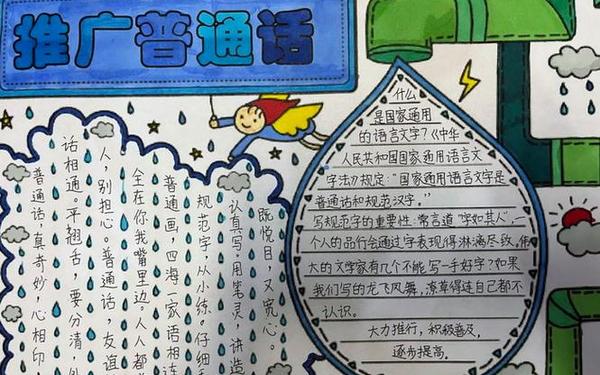 推广普通话
普通话,真奇妙,心相印,
话相通。平翘舌,要分清,外
人,别担心。普通话,友谊
全在你我嘴里边。人人都
普通画,四海一家语相连
规范字,从小练。仔细
认真写,用笔灵,讲造
既悦目,又宽心。
什么
是国家通用
的语言文字?《中华
人民共和国国家通用语言文
字法》规定:“国家通用语言文字是
普通话和规范汉字,”
写规范字的重要性:常言道“字如其人”,一
个人的品行会通过字表现得淋漓尽致,伟
大的文学家有几个不能写一手好字?如果
我们写的龙飞凤舞,潦草得连自己都不
认识。
大力推行,积极普及,
逐步提高。